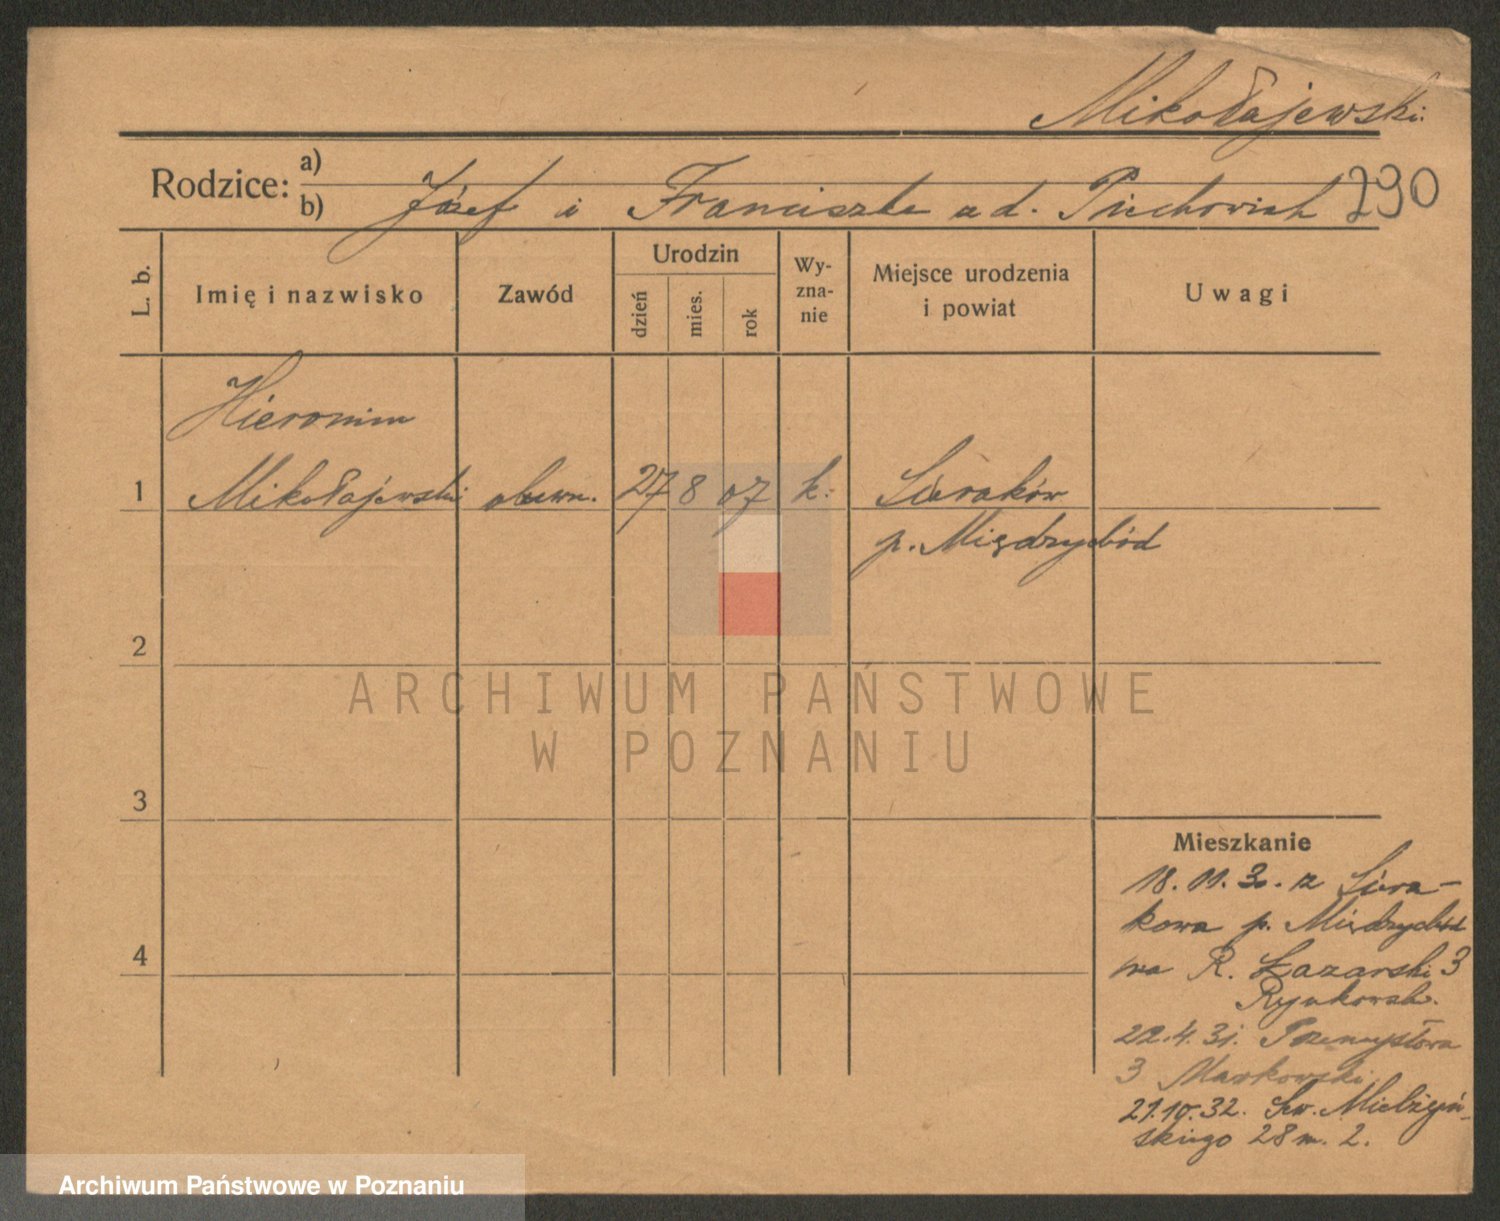 Mikołajewski
Rodzice: a)
b) Józef i Franciszka z d. Piechowiak 290
L. b.
Imię i nazwisko
Zawód
Urodzin
dzień
mies.
rok
Wy-
zna-
nie
Miejsce urodzenia
i powiat
Uwagi
Hieronim
1 Mikołajewski obuwn. 27 8 07 k. Sieraków
p. Międzychód
2
ARCHIWUM PAŃSTWOWE
W POZNANIU
3
Mieszkanie
18.11.30. z Siera-
kowa p. Międzychód
na R. Łazarski 3
4
Rynkowsk.
22.4.31. Przemysłowa
3 Markowski
21.10.32. Sew. Mielżyń-
skiego 28 m. 2.
Archiwum Państwowe w Poznaniu